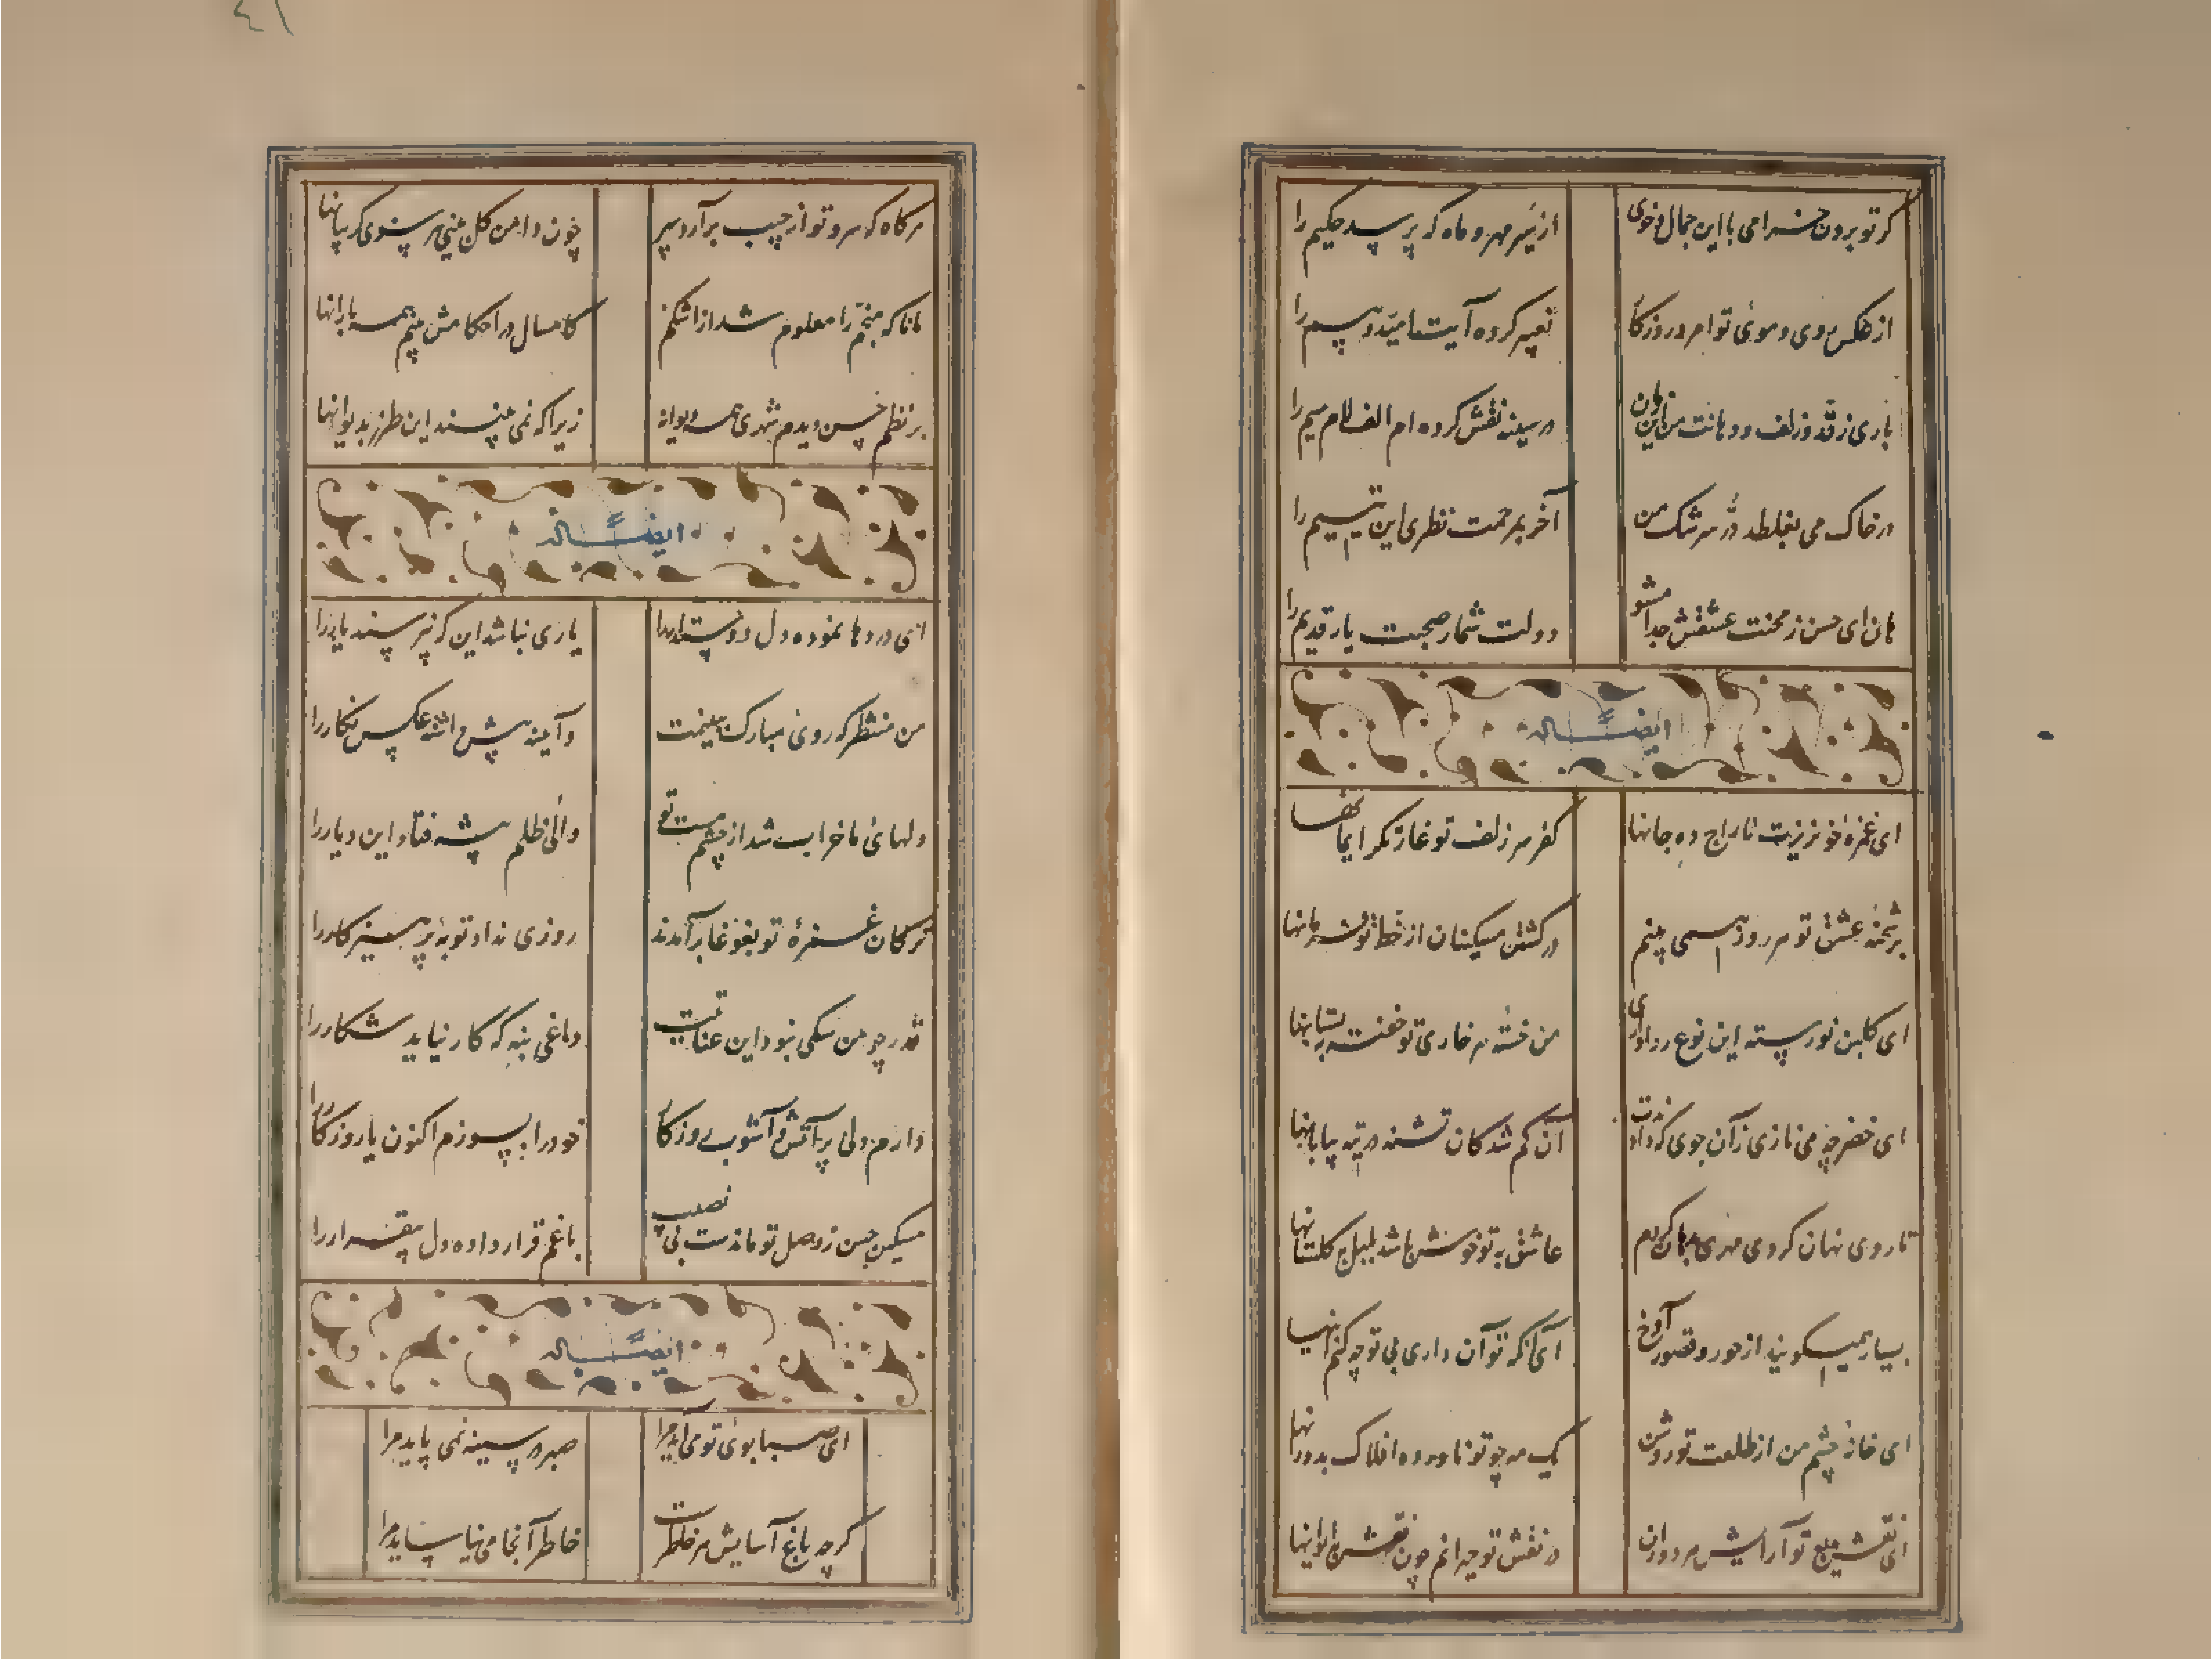 گر تو برون خرامی با این جمال و خوی
از سیر مهر و ماه که پرسد حکیم را
از عکس روی و موی تو امروز روزگار
تعبیر کرده آیت امید و بیم را
باری ز قد و زلف و دهانت من این زمان
در سینه نقش کرده ام الف لام میم را
در خاک می بغلطد در سرشک من
آخر بمرحمت نظری این یتیم را
هان ای حسن ز محنت عشقش جدا مشو
دولت شمار صحبت یار قدیم را
ایضاً له
ای غمزه خونریزت تاراج ده جانها
کفر سر زلف تو غارتگر ایمانها
بر شحنه عشق تو هر روز همی بینم
در کشتن مسکینان از خط تو فرمانها
ای گلبن نورسته این نوع روا داری
من خسته هر خاری تو خفته به بستانها
ای خضر چه می نازی زآن جوی که دادندت
آن گم شدگان تشنه در تیه بیابانها
تا روی نهان کردی
عاشق به تو خوش باشد بلبل به گلستانها
بسیار همیگویند از حور و قصور آوخ
آی آنکه تو آن داری بی تو چه کنم آنها
ای خانه چشم من از طلعت تو روشن
یک مه چو تو ناورده افلاک بدورانها
ای نقش بدیع تو آرایش هر دوران
در نقش تو حیرانم چون نقش بر ایوانها
هر گاه که سرو تو از جیب برآرد سر
چون دامن گل بینی هر سوی گریبانها
مانا که منجم را معلوم شد از اشکم
کامسال در احکامش بینم همه بارانها
بر نظم حسن دیدم شهری همه دیوانه
زیرا که نمی بینند این طرز بدیوانها
ایضاً له
ای دردها نموده دل دوستدار را
یاری نباشد این که نپرسند یار را
من منتظر که روی مبارک ببینمت
وآیینه پیش داشته عکس نگار را
دلهای ما خراب شد از چشم مست تو
والی ظلم پیشه فتاد این دیار را
ترکان غمزه تو بغوغا برآمدند
روزی نداد توبه پرهیزکار را
قدر چو من سگی نبود این عنایت
داغی بنه که کار نیاید شکار را
دارم دلی پر آتش و آشوب روزگار
خود را بسوزم اکنون یا روزگار را
مسکین حسن ز وصل تو ماندست بی نصیب
با غم قرار داده دل بیقرار را
ایضاً له
ای صبا بوی تو می آید مرا
صبر در سینه نمی پاید مرا
گرچه باغ آسایش هر خاطر است
خاطر آنجا می نیاساید مرا